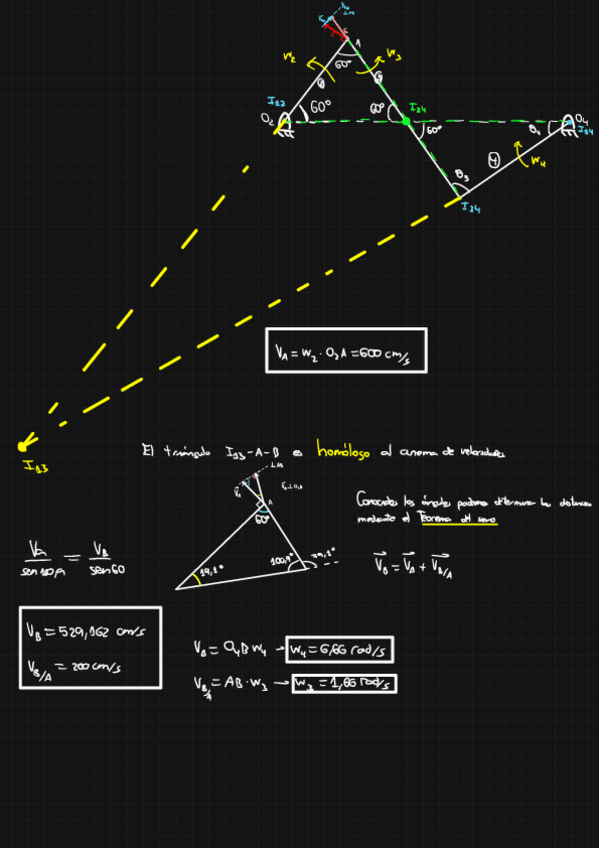 A
W2
W3
60°
I12
60°
60°
I24
O2
60°
O4
I14
θ3
4
W4
I34
VA = W2 · O2A = 600 cm/s
I13
El triángulo I13-A-B es homólogo al cinema de velocidades
A
60°
Conocidos los ángulos podemos determinar las distancias
mediante el Teorema del seno
100,9°
19,1°
VB = VA + VB/A
VB
sen60
VB = 529,162 cm/s
VB/A = 200 cm/s
O4B W4 → W4 = 6,66 rad/s
VB/A = AB · W3 → W3 = 1,66 rad/s